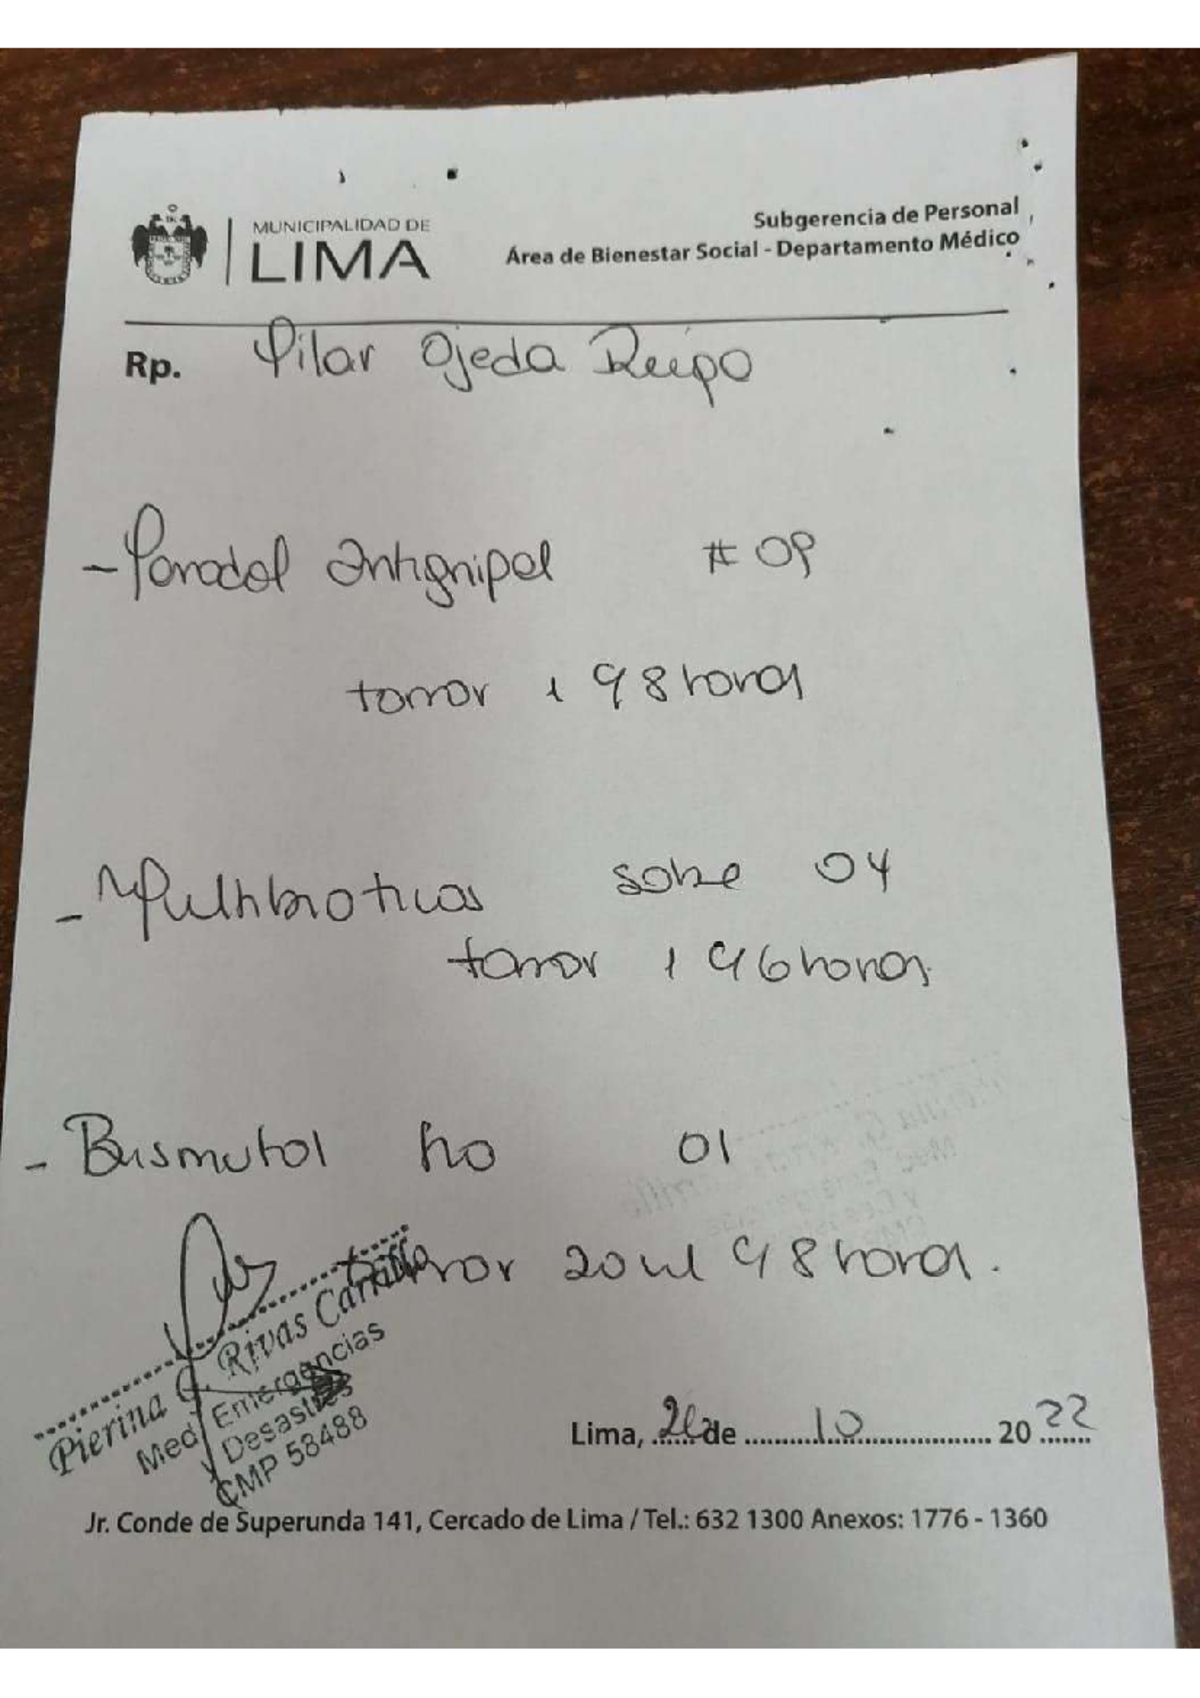 MUNICIPALIDAD DE
LIMA
Subgerencia de Personal
Área de Bienestar Social - Departamento Médico
Rp. Pilar Ojeda
- Panadol Antigripal # 09
tomar 1 c/ 8 horas
- Multibioticos sobre 04
tomar 1 c/ 6 horas.
- Bismutol fco 01
tomar 20 ml c/ 8 horas.
Pierina G. Rivas Carrillo
Med. Emergencias
y Desastres
CMP 58488
Lima, de 10 2022
Jr. Conde de Superunda 141, Cercado de Lima / Tel.: 632 1300 Anexos: 1776 - 1360